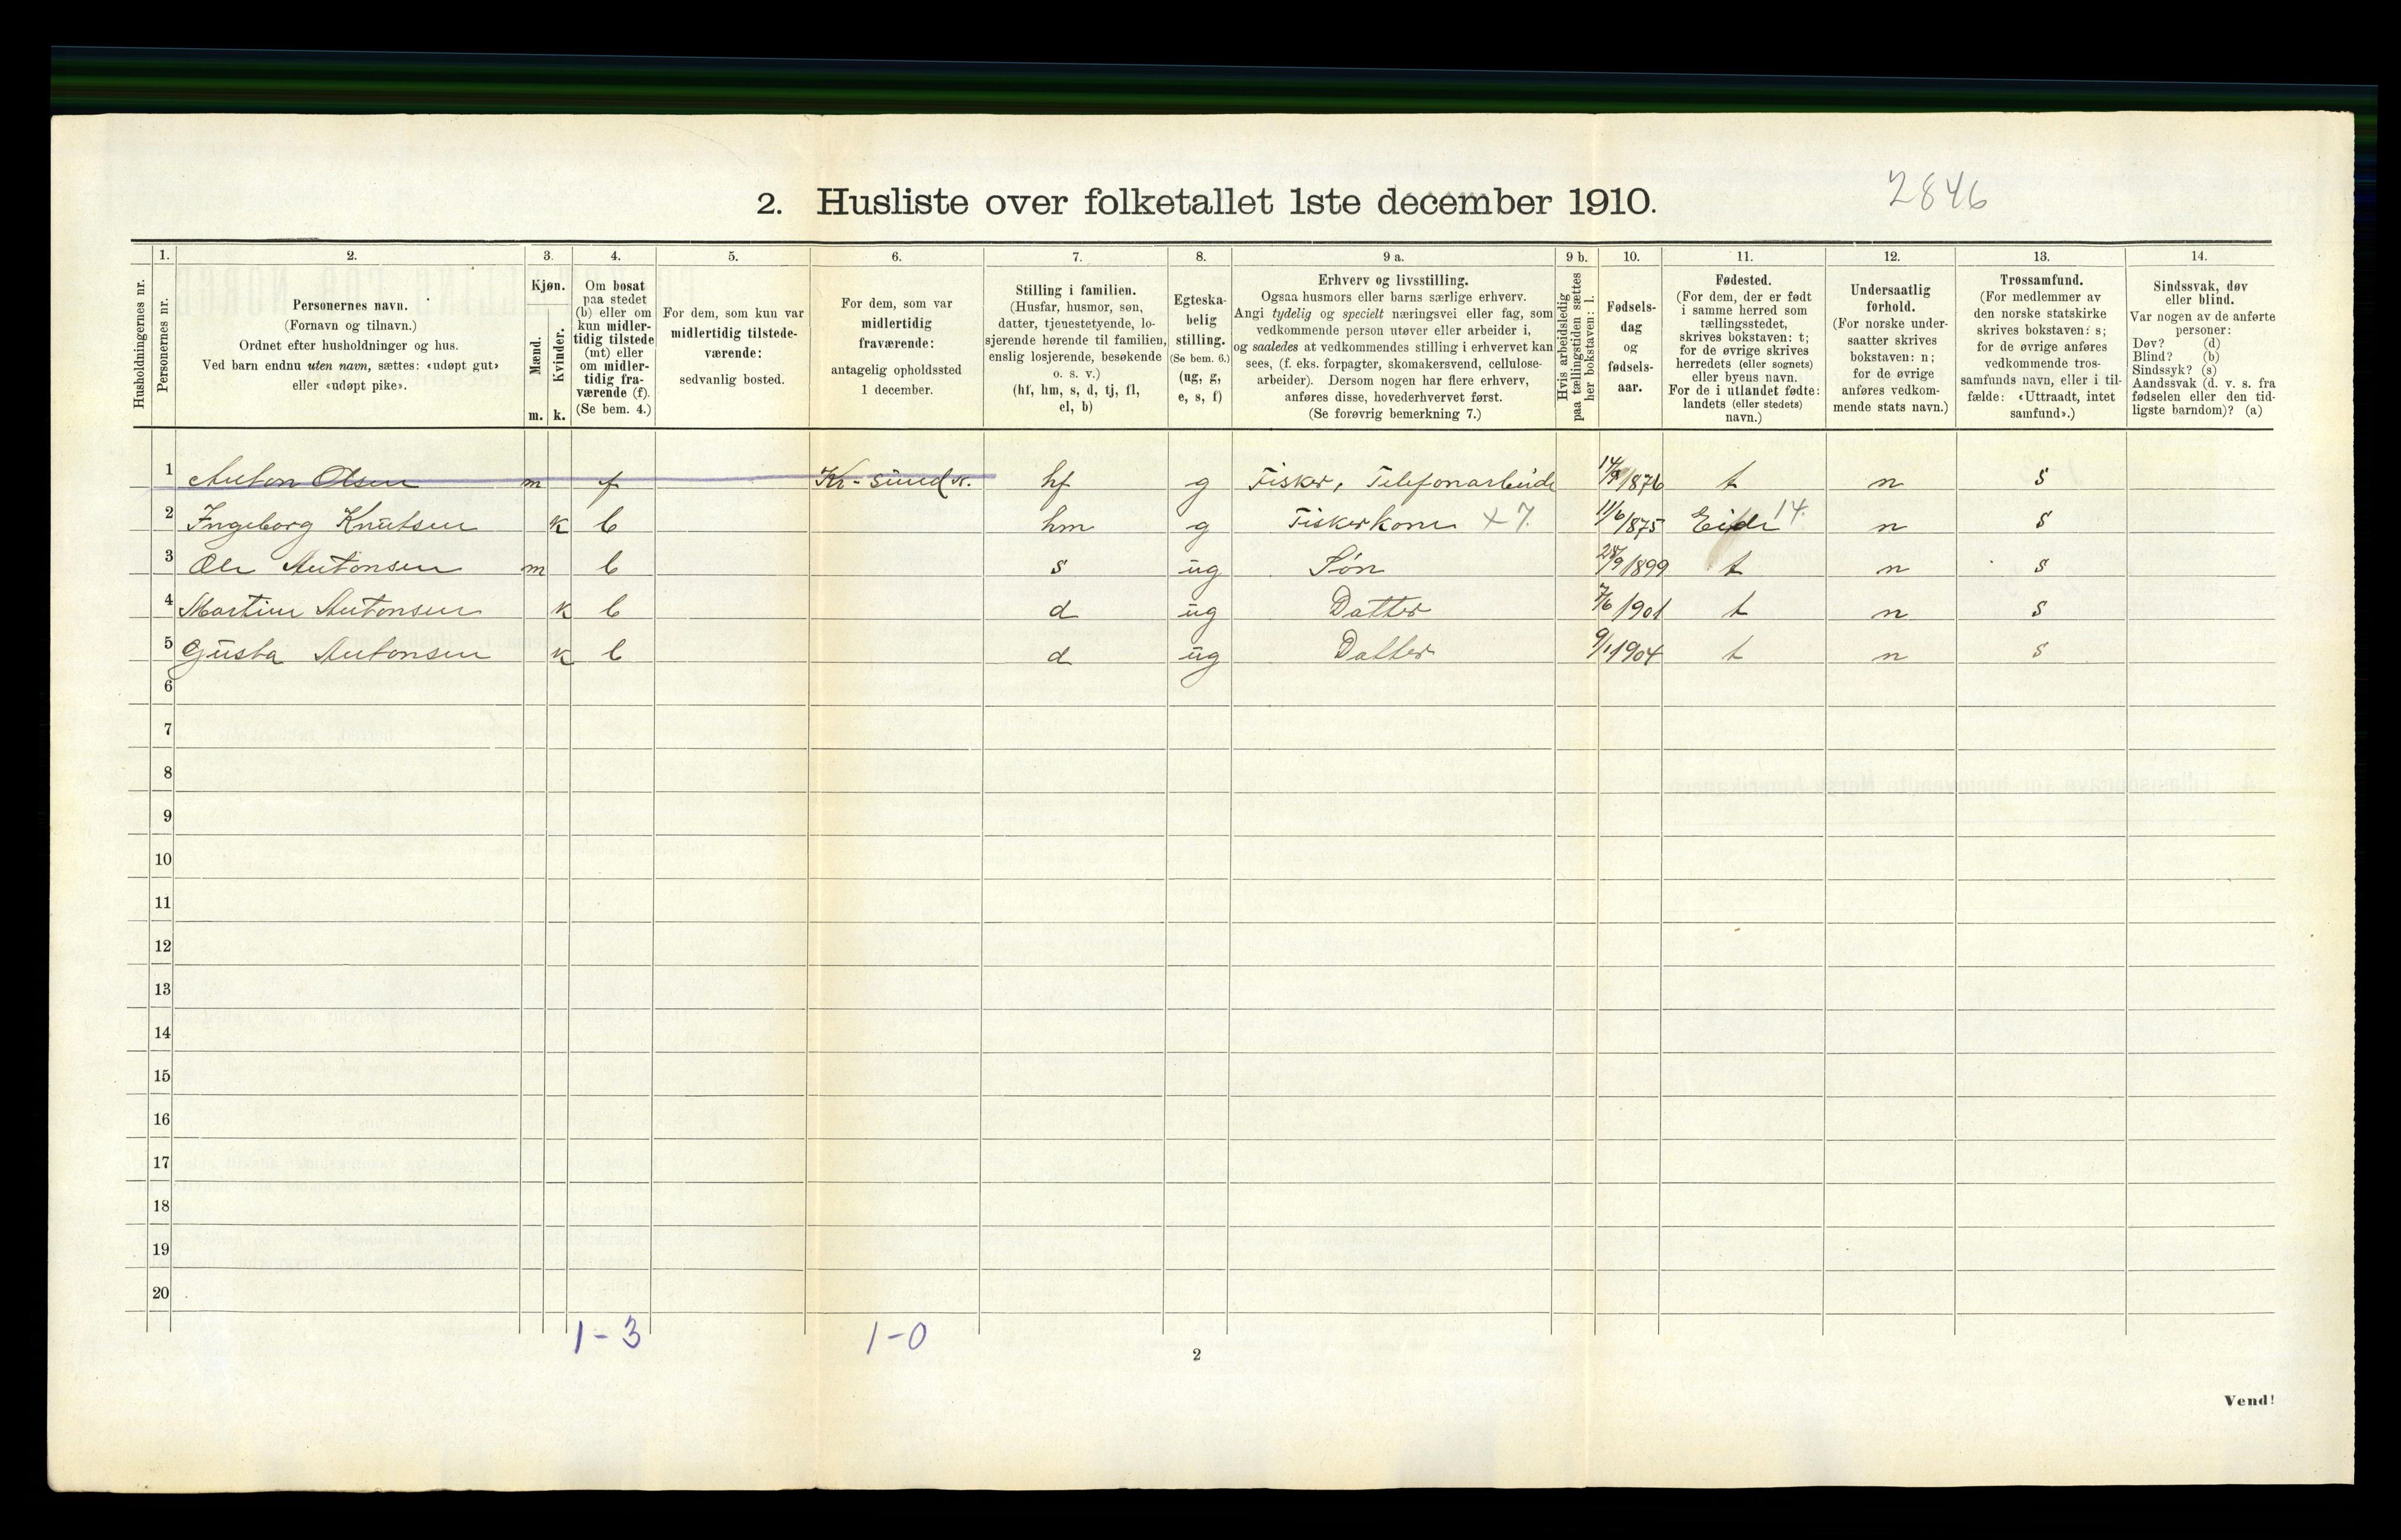 2846
2. Husliste over folketallet 1ste december 1910.
Husholdningernes nr.
1.
Personernes nr.
2.
Personernes navn.
(Fornavn og tilnavn.)
Ordnet efter husholdninger og hus.
Ved barn endnu uten navn, sættes: «udøpt gut»
eller «udøpt pike».
3.
Kjøn.
Mænd.
m.
Kvinder.
k.
4.
Om bosat
paa stedet
(b) eller om
kun midler-
tidig tilstede
(mt) eller
om midler-
tidig fra-
værende (f).
(Se bem. 4.)
5.
For dem, som kun var
midlertidig tilstede-
værende:
sedvanlig bosted.
6.
For dem, som var
midlertidig
fraværende:
antagelig opholdssted
1 december.
7.
Stilling i familien.
(Husfar, husmor, søn,
datter, tjenestetyende, lo-
sjerende hørende til familien,
enslig losjerende, besøkende
o. s. v.)
(hf, hm, s, d, tj, fl,
el, b)
8.
Egteska-
belig
stilling.
(Se bem. 6.)
(ug, g,
e, s, f)
9 a.
Erhverv og livsstilling.
Ogsaa husmors eller barns særlige erhverv.
Angi tydelig og specielt næringsvei eller fag, som
vedkommende person utøver eller arbeider i,
og saaledes at vedkommendes stilling i erhvervet kan
sees, (f. eks. forpagter, skomakersvend, cellulose-
arbeider). Dersom nogen har flere erhverv,
anføres disse, hovederhvervet først.
(Se forøvrig bemerkning 7.)
9 b.
Hvis arbeidsledig
paa tællingstiden sættes
her bokstaven: l.
10.
Fødsels-
dag
og
fødsels-
aar.
11.
Fødested.
(For dem, der er født
i samme herred som
tællingsstedet,
skrives bokstaven: t;
for de øvrige skrives
herredets (eller sognets)
eller byens navn.
For de i utlandet fødte:
landets (eller stedets)
navn.)
12.
Undersaatlig
forhold.
(For norske under-
saatter skrives
bokstaven: n;
for de øvrige
anføres vedkom-
mende stats navn.)
13.
Trossamfund.
(For medlemmer av
den norske statskirke
skrives bokstaven: s;
for de øvrige anføres
vedkommende tros-
samfunds navn, eller i til-
fælde: «Uttraadt, intet
samfund».)
14.
Sindssvak, døv
eller blind.
Var nogen av de anførte
personer:
Døv? (d)
Blind? (b)
Sindssyk? (s)
Aandssvak (d. v. s. fra
fødselen eller den tid-
ligste barndom)? (a)
1 Anton Olsen m f Kr-sund N. hf g Fisker, Telefonarbeide 1876 t n s
2 Ingeborg Knutsen k b hm g Fiskerkone x 7. 11/6 1875 Eide 14. n s
3 Ole Antonsen m b s ug Søn 1899 t n s
4 Martine Antonsen k b d ug Datter 7/6 1901 t n s
5 Gusta Antonsen k b d ug Datter 9/1 1904 t n s
6
7
8
9
10
11
12
13
14
15
16
17
18
19
20
1-3 1-0
2
Vend!